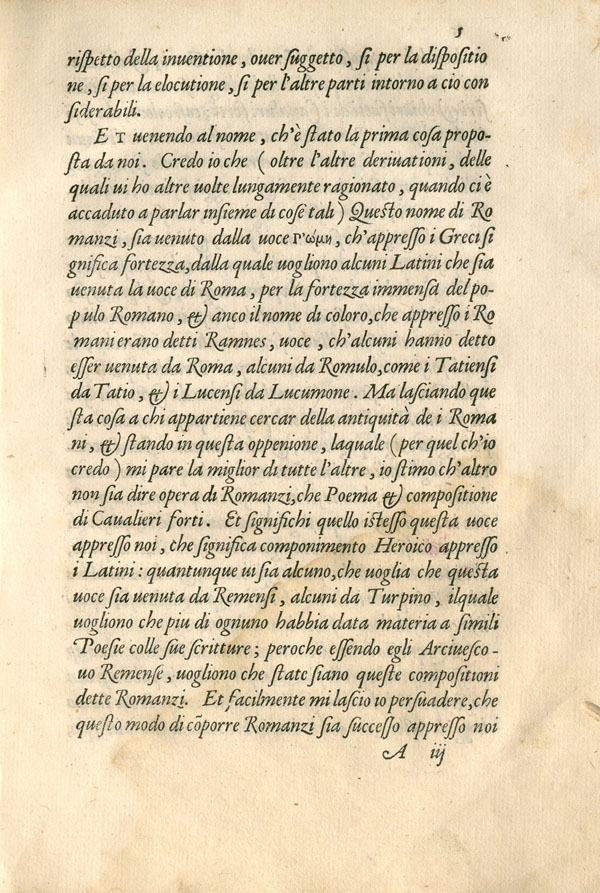 5
rispetto della inuentione, ouer suggetto, si per la dispositio
ne, si per la elocutione, si per l'altre parti intorno a cio con
siderabili.
ET uenendo al nome, ch'è stato la prima cosa propo-
sta da noi. Credo io che (oltre l'altre deriuationi, delle
quali ui ho altre uolte lungamente ragionato, quando ci è
accaduto a parlar insieme di cose tali) Questo nome di Ro
manzi, sia uenuto dalla uoce Ρ'ώμη, ch'appresso i Greci si
gnifica fortezza, dalla quale uogliono alcuni Latini che sia
uenuta la uoce di Roma, per la fortezza immensa del po-
pulo Romano, & anco il nome di coloro, che appresso i Ro
mani erano detti Ramnes, uoce, ch'alcuni hanno detto
esser uenuta da Roma, alcuni da Romulo, come i Tatiensi
da Tatio, & i Lucensi da Lucumone. Ma lasciando que
sta cosa a chi appartiene cercar della antiquità de i Roma
ni, & stando in questa oppenione, laquale (per quel ch'io
credo) mi pare la miglior di tutte l'altre, io stimo ch'altro
non sia dire opera di Romanzi, che Poema & compositione
di Caualieri forti. Et significhi quello istesso questa uoce
appresso noi, che significa componimento Heroico appresso
i Latini: quantunque ui sia alcuno, che uoglia che questa
uoce sia uenuta da Remensi, alcuni da Turpino, ilquale
uogliono che piu di ognuno habbia data materia a simili
Poesie colle sue scritture; peroche essendo egli Arciuesco-
uo Remense, uogliono che state siano queste compositioni
dette Romanzi. Et facilmente mi lascio io persuadere, che
questo modo di cōporre Romanzi sia successo appresso noi
A iij